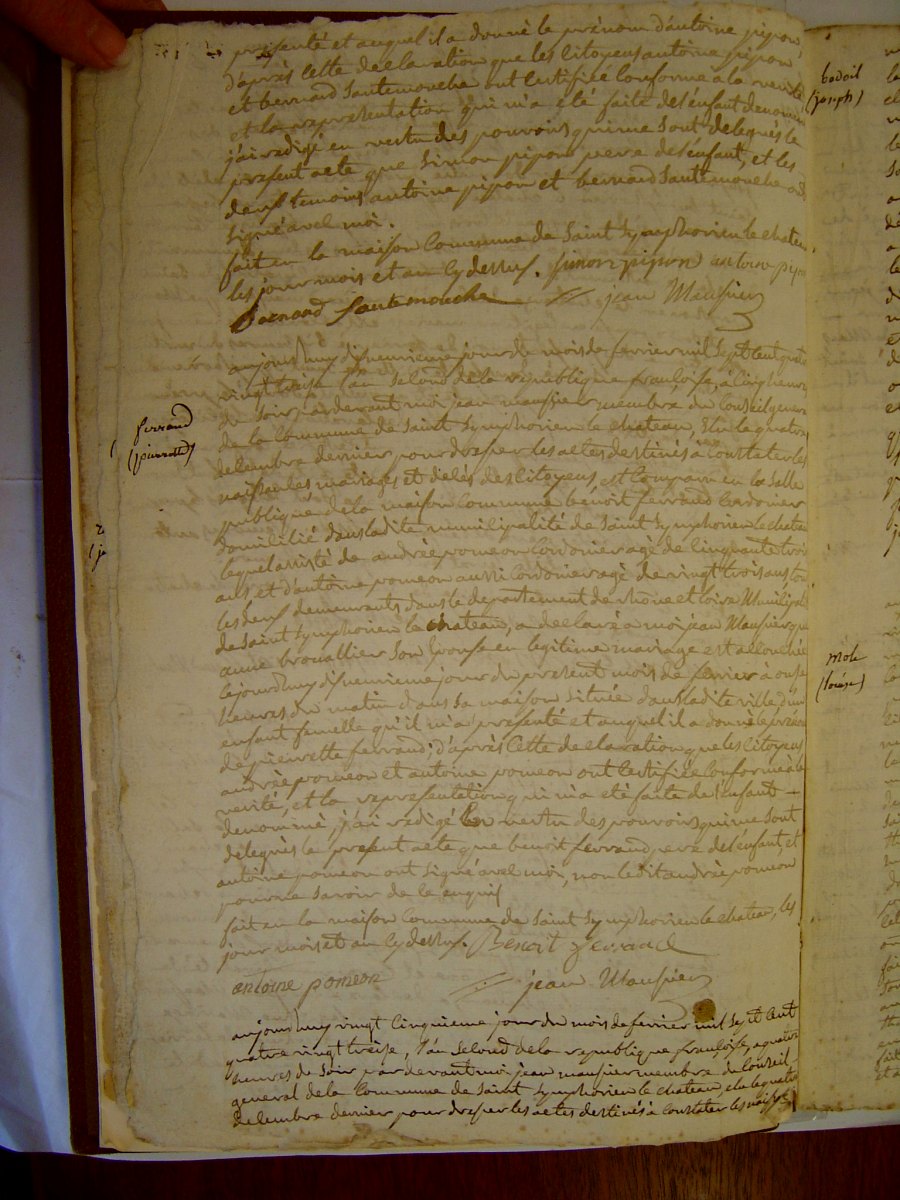 présenté et auquel il a donné le prénom d'antoine pipon,
d'après cette declaration que les Citoyens antoine pipon
et bernard Sautemouche ont Certifiée Conforme a la verité
et la representation qui m'a été faite de l'enfant denommé
j'ai redigé en vertu des pouvoirs qui me sont delegués le
present acte que Simon pipon pere de l'enfant, et les
deux temoins antoine pipon et bernard Sautemouche ont
signé avec moi.
fait en la maison Commune de Saint Symphorien le chateau
les jour mois et an cy dessus. simon pipon antoine pipon
Bernard Sautemouche jean Maussier
aujourd'huy dixneuvieme jour de mois de fevrier mil sept cent quatre
vingt treise l'an second de la republique francoise, à cinq heures
du soir pardevant moi jean maussier membre du Conseil general
de la Commune de Saint Symphorien le chateau, Elu le quatorze
decembre dernier pour dresser les actes destinés à Constater les
naissances mariages et décés des Citoyens, est Comparu en la salle
publique de la maison Commune benoit ferrand Cordonier
domicilié dans ladite municipalité de Saint Symphorien le chateau
lequel assisté de andrée pomeon Cordonier agé de Cinquante trois
ans et d'antoine pomeon aussi Cordonier agé de vingt trois ans tous
les deux demeurants dans le departement de rhone et loire Municipalité
de Saint Symphorien le chateau, a declaré a moi jean Maussier que
anne brouallier son Epouse en legitime mariage est accouchée
cejourd'huy dixneuvieme jour du present mois de fevrier à onse
heures du matin dans sa maison située dans ladite ville d'un
enfant femelle qu'il m'a présenté et auquel il a donné le prénom
de pierrette ferrand; d'après Cette declaration que les Citoyens
andrée pomeon et antoine pomeon ont Certifiée Conforme à la
verité, et la representation qui m'a été faite de l'enfant
denommé, j'ai redigé En vertu des pouvoirs qui me sont
délegués le present acte que benoit ferrand pere de l'enfant, et
antoine pomeon ont signé avec moi, non ledit andrée pomeon
pour ne savoir de ce enquis
fait en la maison Commune de Saint Symphorien le chateau, les
jour mois et an cy dessus. Benoit ferrand
antoine pomeon jean Maussier
aujourd'huy vingt Cinquieme jour du mois de fevrier mil sept Cent
quatre vingt treise, l'an second de la republique francoise, a quatre
heures du soir pardevant moi jean maussier membre du Conseil
general de la Commune de Saint Symphorien le chateau, elu le quatorze
decembre dernier pour dresser les actes destinés à Constater les naissances
ferrand
(pierrette)
bodoil
(joseph)
mole
(louise)